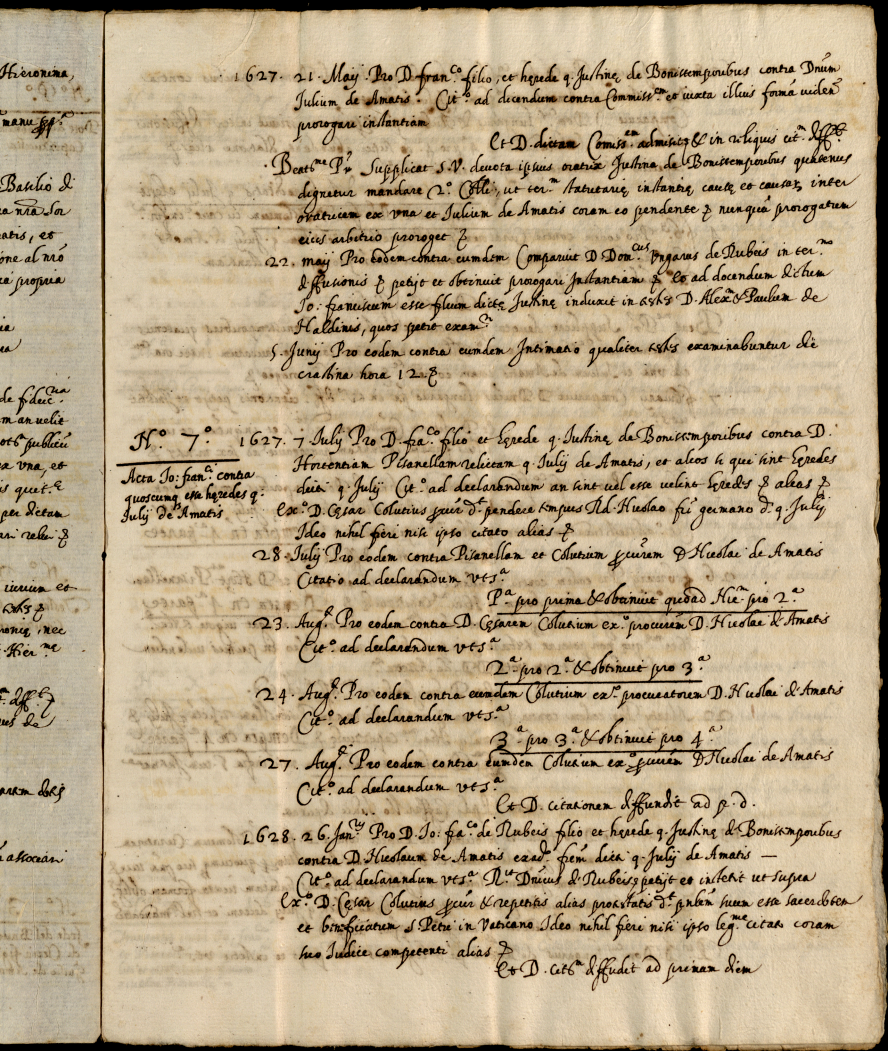 Hieronima,
manu
Basilio di
ra nra Sor
atis, et
one al nro
ra propria
ia
de fideic.
m an velit
publicu
a vna, et
is quit.
per dictam
ari relu
iurium et
ronia, nec
Hier.me
diff.
associari
1627. 21. Maij. Pro D. fran.co filio, et hęrede q. Justinę de Bonistemporibus contra Dnum
Julium de Amatis. Cit.o ad dicendum contra Commiss.em et iuxta illius formā viden
prorogari instantiam
Et D. dictam Comiss.em admisit & in reliquis cit.m diff.
Beat.me P.r Supplicat S.V. devota ipsius oratrix Justina de Bonistemporibus quatenus
dignetur mandare 2.o Colli, ut ter.m statutarię instantię, cauę et causaȝ inter
oratricem ex vna et Iulium de Amatis coram eo pendente nunquā prorogatum
eius arbitrio proroget
22. maij Pro eodem contra eumdem Comparuit D. Dom.cus Vngarus de Rubeis in ter.no
diffusionis petijt et obtinuit prorogari Instantiam Et ad docendum dictum
Jo: franciscum esse filium dictę Justinę induxit in D. Alex.m & Paulum de
Haldinis, quos petit exam.ri
5. Junij Pro eodem contra eumdem Intimatio qualiter examinabuntur die
crastina hora 12.
N.o 7.o
Acta Io: fran.ci contra
quoscumq esse hęredes q.
Julij de Amatis
1627. 7. Julij Pro D. fra.co filio et hęrede q. Iustinę de Bonistemporibus contra D.
Hortentiam Pisanellam relictam q. Julij de Amatis, et alios si qui sint hęredes
dicti q. Julij Cit.o ad declarandum an sint vel esse velint hęredes aleas
Ex.o D. Cęsar Colutius pcur d.t pendere tempus R.d. Nicolao fri germano d. q. Julij
Ideo nihil fieri nisi ipso citato alias
28. Julij Pro eodem contra Pisanellam et Colutium pcurem D Nicolai de Amatis
Citatio ad declarandum vts.a
P.a pro prima & obtinuit quoad Hier.m pro 2.a
23. Aug. Pro eodem contra D. Cęsarem Colutium ex.o procurem D. Nicolai de Amatis
Cit.o ad declarandum vts.a
2.a pro 2.a & obtinuit pro 3.a
24. Aug. Pro eodem contra eumdem Colutium ex.o procuratorem D. Nicolai de Amatis
Cit.o ad declarandum vts.a
3.a pro 3.a & obtinuit pro 4.a
27. Aug. Pro eodem contra eumdem Colutium ex.o pcurem D Nicolai de Amatis
Cit.o ad declarandum vts.a
Et D. citationem diffundit ad p. d.
1628. 26. Jan.rij Pro D. Jo: fra.co de Rubeis filio et hęrede q. Justinę de Bonistemporibus
contra D. Nicolaum de Amatis frem dicti q. Julij de Amatis —
Cit.o ad declarandum vts.a Dnicus de Rubeis petijt et institit ut supra
Ex.o D. Cęsar Colutius pcur & repetitis alias protestatis d.t pnlem suum esse sacerdotem
et beneficiatum S Petri in Vaticano Ideo nihil fieri nisi ipso leg.me citato coram
suo Iudice competenti alias
Et D. cit.m diffudit ad primam diem